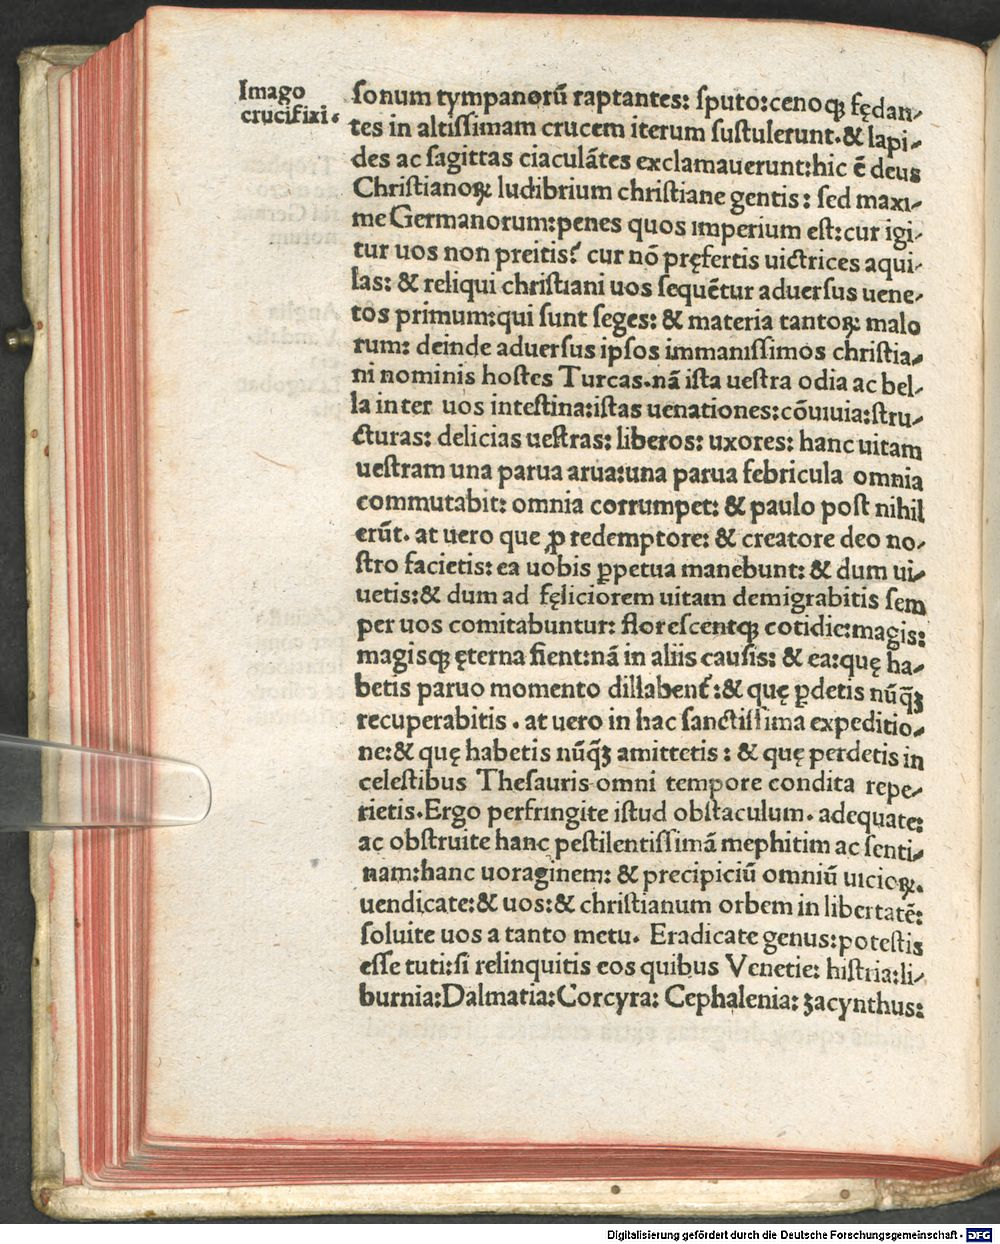 Imago
crucifixi.
ſonum tympanorū raptantes: ſputo:cenoqꝫ fędan⸗
tes in altiſſimam crucem iterum ſuſtulerunt.& lapi⸗
des ac ſagittas ciaculātes exclamauerunt:hic ē deus
Christianoꝝ ludibrium chriſtiane gentis: ſed maxi⸗
me Germanorum:penes quos imperium eſt:cur igi⸗
tur uos non preitis? cur nō pręfertis uictrices aqui⸗
las: & reliqui chriſtiani uos ſequētur aduerſus uene⸗
tos primum:qui ſunt ſeges: & materia tantoꝝ malo
rum: deinde aduerſus ipſos immaniſſimos chriſtia⸗
ni nominis hoſtes Turcas.nā iſta ueſtra odia ac bel⸗
la inter uos inteſtina:iſtas uenationes:cōuiuia:ſtru⸗
cturas: delicias ueſtras: liberos: uxores: hanc uitam
ueſtram una parua arua:una parua febricula omnia
commutabit: omnia corrumpet: & paulo poſt nihil
erūt. at uero que ꝓ redemptore: & creatore deo no⸗
ſtro facietis: ea uobis ꝑpetua manebunt: & dum ui⸗
uetis:& dum ad fęliciorem uitam demigrabitis ſem
per uos comitabuntur: floreſcentqꝫ cotidie:magis:
magisqꝫ ęterna fient:nā in aliis cauſis: & ea:quę ha⸗
betis paruo momento dillabent᷑:& quę ꝑdetis nūq̄ꝫ
recuperabitis . at uero in hac ſanctiſſima expeditio⸗
ne:& quę habetis nūq̄ꝫ amittetis : & quę perdetis in
celeſtibus Theſauris omni tempore condita repe⸗
rietis.Ergo perfringite iſtud obſtaculum. adequate:
ac obſtruite hanc peſtilentiſſimā mephitim ac ſenti⸗
nam:hanc uoraginem: & precipiciū omniū uicioꝝ.
uendicate:& uos:& chriſtianum orbem in libertatē:
ſoluite uos a tanto metu. Eradicate genus:poteſtis
eſſe tuti:ſi relinquitis eos quibus Venetie: hiſtria:li⸗
burnia:Dalmatia:Corcyra: Cephalenia: ʒacynthus:
Digitalisierung gefördert durch die Deutsche Forschungsgemeinschaft - DFG